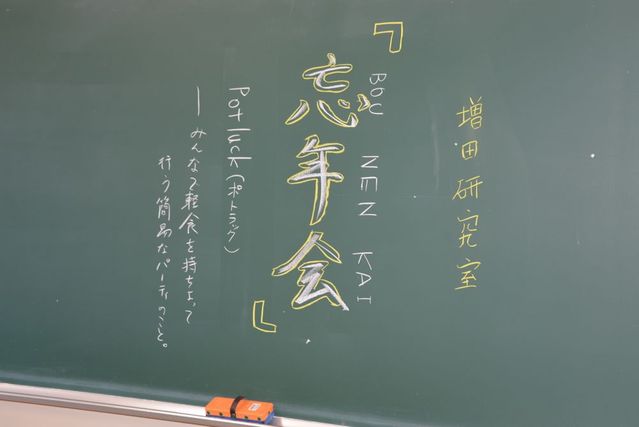 増田研究室
『忘年会』
BOU NEN KAI
Potluck (ポトラック)
― みんなで軽食を持ちよって
行う簡易なパーティのこと。